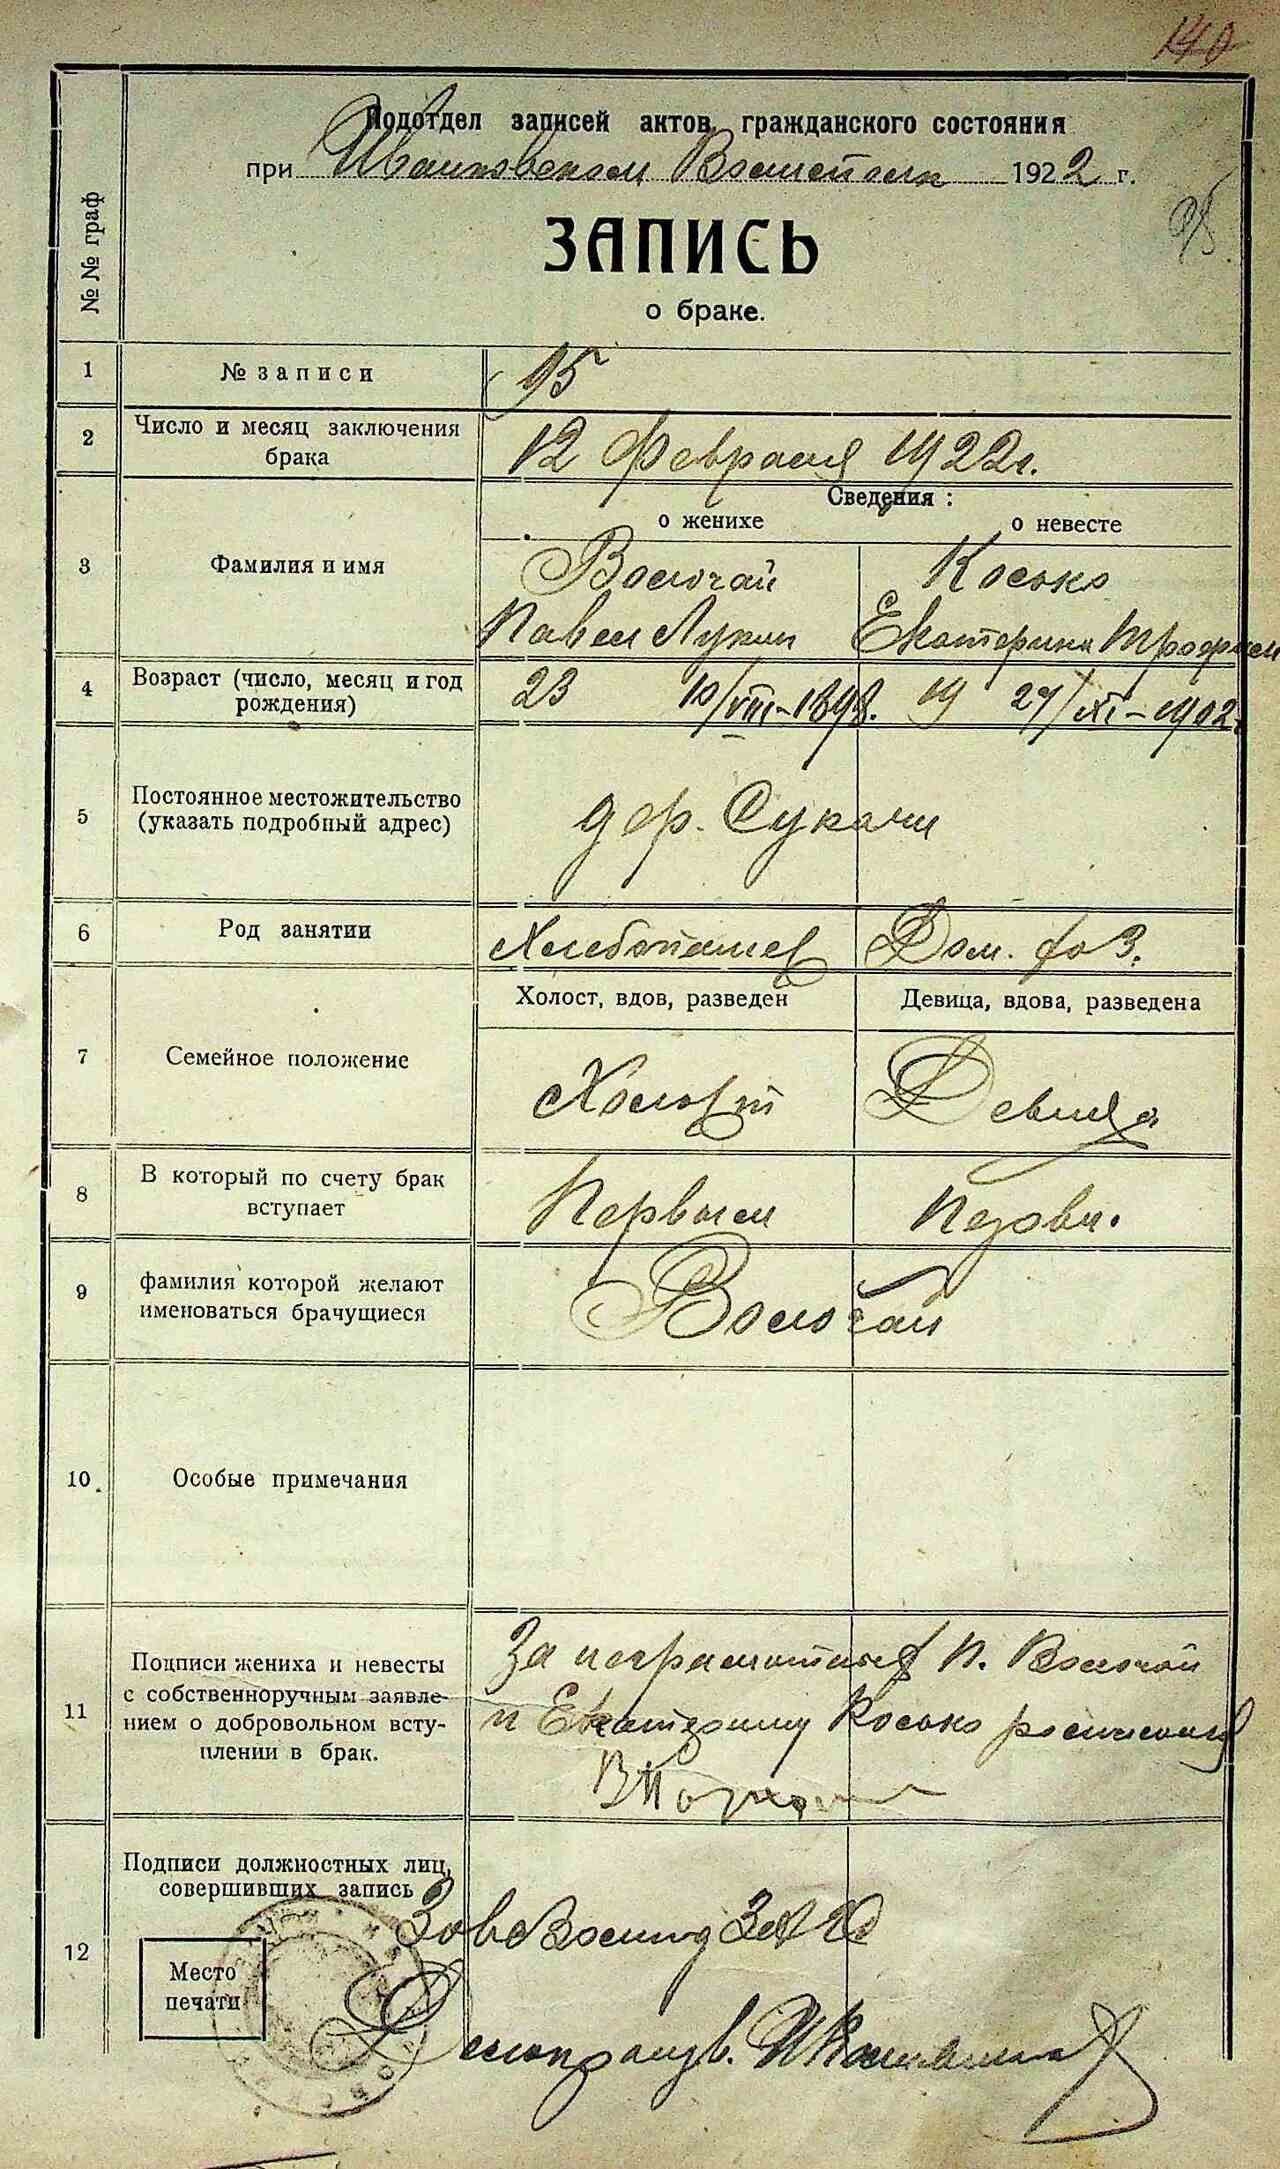 140
Подотдел записей актов гражданского состояния
при Иванковском 1922 г.
95
№ № граф
ЗАПИСЬ
о браке.
1 № записи 95
2 Число и месяц заключения
брака
12 Февраля 1922 г.
Сведения:
о женихе о невесте
3 Фамилия и имя
Волочай Косько
Павел Лукич Екатерина Трофим
4 Возраст (число, месяц и год
рождения)
23 10/VIII–1898. 19 27/XI–1902.
5 Постоянное местожительство
(указать подробный адрес)
дер. Сукачи
6 Род занятии
Хлебопашец Дом. хоз.
Холост, вдов, разведен Девица, вдова, разведена
7 Семейное положение
Холост Девица
8 В который по счету брак
вступает
Первым
9 фамилия которой желают
именоваться брачущиеся
Волочай
10. Особые примечания
11 Подписи жениха и невесты
с собственноручным заявле-
нием о добровольном всту-
плении в брак.
За неграмотных П. Волочай
и Екатерину Косько
12 Подписи должностных лиц,
совершивших запись
Место
печати
Делопроизв.